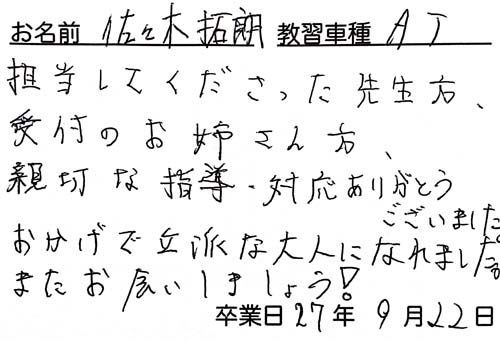 お名前 佐々木拓朗 教習車種 AT
担当してくださった先生方、
受付のお姉さん方、
親切な指導・対応ありがとう
ございました。
おかげで立派な大人になれました。
またお会いしましょう!
卒業日27年9月22日